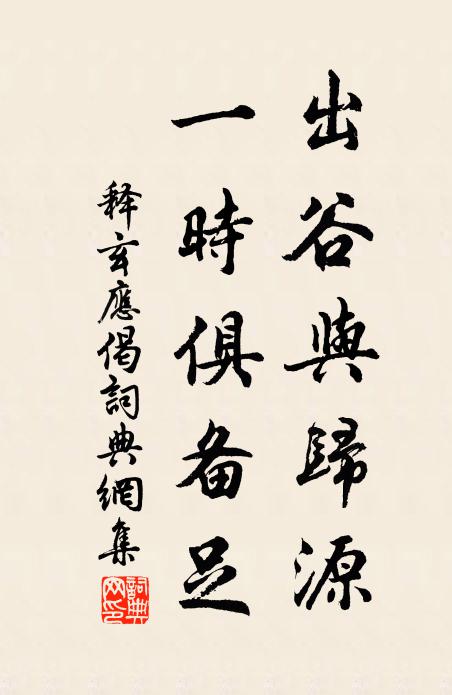 出谷與歸源
一時俱备足
释玄應偈詞典網集
詞典网印